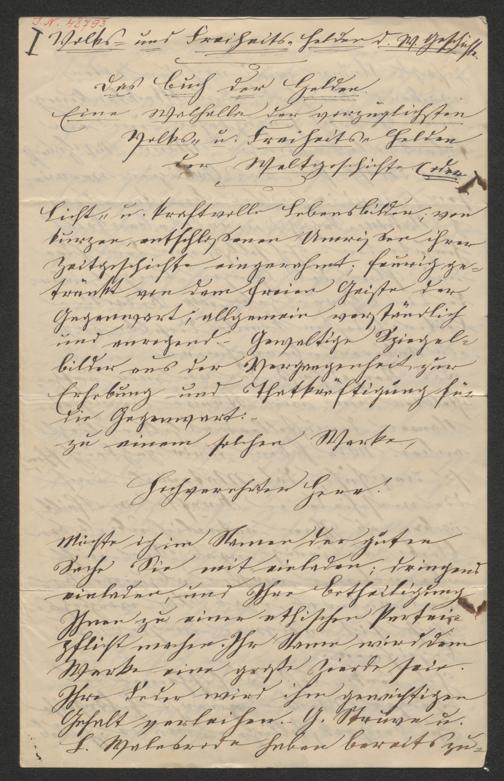 I.N. 48793
I Volks- und Freiheits-Helden d. W. Geschichte
Das Buch der Helden.
Eine Walhalla der vorzüglichsten
Volks- u. Freiheits-Helden
der Weltgeschichte (oder
Licht- u. kraftvolle Lebensbilder, von
kurzen entschloßenen Umrißen ihrer
Zeitgeschichte eingerahmt; feurig ge-
tränkt von dem freien Geiste der
Gegenwart; allgemein verständlich
und anregend. Gewaltige Spiegel-
bilder aus der Vergangenheit zur
Erhebung und Thatkräftigung für
die Gegenwart:-
zu einem solchen Werke,
Hochverehrter Herr!
Möchte ich im Namen der guten
Sache Sie mit einladen; dringend
einladen, und Ihre Betheiligung
Ihnen zu einer ethischen Partei-
pflicht machen. Ihr Name wird dem
Werke eine große Zierde sein.
Ihre Feder wird ihm gewichtigen
Gehalt verleihen. G. Struve u.
L. Walesrode haben bereits zu-